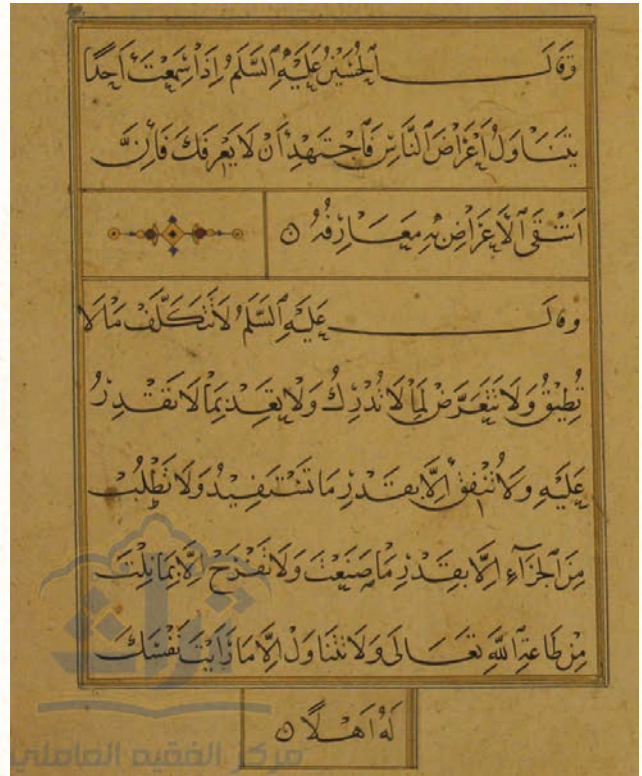 وَقَالَ الْحُسَيْنُ عَلَيْهِ السَّلَمُ إِذَا سَمِعْتَ أَحَدًا
يَتَنَاوَلُ أَعْرَاضَ النَّاسِ فَاجْتَهِدْ أَنْ لَا يَعْرِفَكَ فَإِنَّ
أَشْقَى الْأَعْرَاضِ بِهِ مَعَارِفُهُ
وَقَالَ عَلَيْهِ السَّلَمُ لَا تَتَكَلَّفْ مَا لَا
تُطِيقُ وَلَا تَتَعَرَّضْ لِمَا لَا تُدْرِكُ وَلَا تَعِدْ بِمَا لَا تَقْدِرُ
عَلَيْهِ وَلَا تُنْفِقْ إِلَّا بِقَدْرِ مَا تَسْتَفِيدُ وَلَا تَطْلُبْ
مِنَ الْجَزَاءِ إِلَّا بِقَدْرِ مَا صَنَعْتَ وَلَا تَفْرَحْ إِلَّا بِمَا نِلْتَ
مِنْ طَاعَةِ اللَّهِ تَعَالَى وَلَا تَتَنَاوَلْ إِلَّا مَا رَأَيْتَ نَفْسَكَ
لَهُ أَهْلًا
تراث
مركز الفقيه العاملي